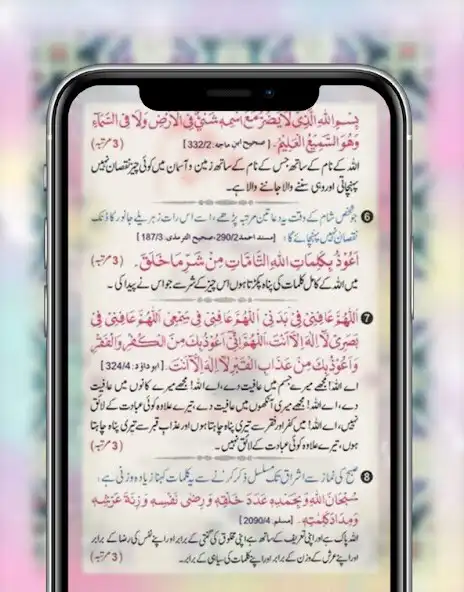 بِسْمِ اللهِ الَّذِیْ لَا یَضُرُّ مَعَ اسْمِهٖ شَیْئٌ فِی الْاَرْضِ وَلَا فِی السَّمَآءِ
وَهُوَ السَّمِیْعُ الْعَلِیْمُ۔ [صحیح ابن ماجہ: 332/2] (3 مرتبہ)
اللہ کے نام کے ساتھ جس کے نام کے ساتھ زمین و آسمان میں کوئی چیز نقصان نہیں
پہنچاتی اور وہی سننے والا جاننے والا ہے۔
6 جو شخص شام کے وقت یہ دعا تین مرتبہ پڑھے، اسے اس رات زہریلے جانور کا ڈنک
نقصان نہیں پہنچائے گا: [مسند احمد: 290/2، صحیح الترمذی: 187/3]
اَعُوْذُ بِکَلِمَاتِ اللهِ التَّامَّاتِ مِنْ شَرِّ مَا خَلَقَ۔ (3 مرتبہ)
میں اللہ کے کامل کلمات کی پناہ پکڑتا ہوں اس چیز کے شر سے جو اس نے پیدا کی۔
7 اَللّٰهُمَّ عَافِنِیْ فِیْ بَدَنِیْ اَللّٰهُمَّ عَافِنِیْ فِیْ سَمْعِیْ اَللّٰهُمَّ عَافِنِیْ فِیْ
بَصَرِیْ لَا اِلٰهَ اِلَّا اَنْتَ، اَللّٰهُمَّ اِنِّیْ اَعُوْذُ بِکَ مِنَ الْکُفْرِ وَالْفَقْرِ
وَاَعُوْذُ بِکَ مِنْ عَذَابِ الْقَبْرِ لَا اِلٰهَ اِلَّا اَنْتَ۔ [ابوداؤد: 324/4]
اے اللہ! مجھے میرے جسم میں عافیت دے، اے اللہ! مجھے میرے کانوں میں عافیت
دے، اے اللہ! مجھے میری آنکھوں میں عافیت دے، تیرے علاوہ کوئی عبادت کے لائق
نہیں، اے اللہ! میں کفر اور فقر سے تیری پناہ چاہتا ہوں اور عذابِ قبر سے تیری پناہ چاہتا
ہوں، تیرے علاوہ کوئی عبادت کے لائق نہیں۔ (3 مرتبہ)
8 صبح کی نماز سے اشراق تک مسلسل ذکر کرنے سے یہ کلمات کہنا زیادہ وزنی ہے:
سُبْحَانَ اللهِ وَبِحَمْدِهٖ عَدَدَ خَلْقِهٖ وَرِضٰی نَفْسِهٖ وَزِنَةَ عَرْشِهٖ
وَمِدَادَ کَلِمٰتِهٖ۔ [مسلم: 2090/4]
اللہ پاک ہے اور اپنی تعریف کے ساتھ ہے اپنی مخلوق کی گنتی کے برابر اور اپنے نفس کی رضا کے برابر
اور اپنے عرش کے وزن کے برابر اور اپنے کلمات کی سیاہی کے برابر۔ (3 مرتبہ)